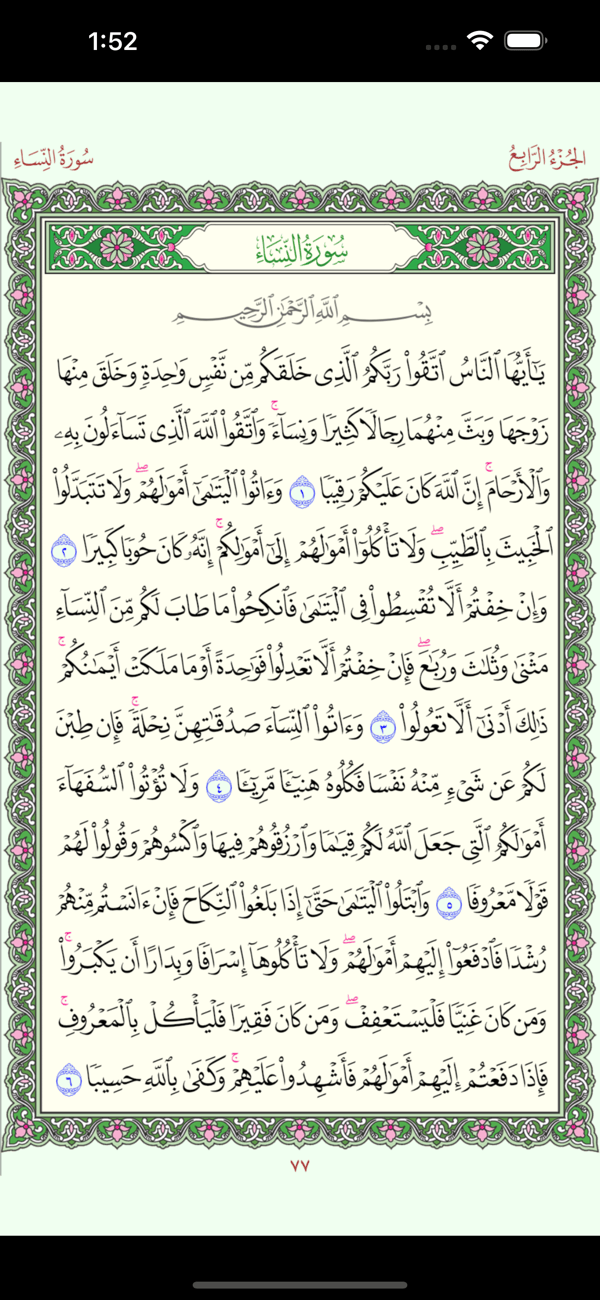 1:52
الجُزْءُ الرَّابِعُ
سُورَةُ النِّسَاءِ
سُورَةُ النِّسَاءِ
بِسْمِ ٱللَّهِ ٱلرَّحْمَٰنِ ٱلرَّحِيمِ
يَٰٓأَيُّهَا ٱلنَّاسُ ٱتَّقُوا۟ رَبَّكُمُ ٱلَّذِى خَلَقَكُم مِّن نَّفْسٍ وَٰحِدَةٍ وَخَلَقَ مِنْهَا
زَوْجَهَا وَبَثَّ مِنْهُمَا رِجَالًا كَثِيرًا وَنِسَآءً ۚ وَٱتَّقُوا۟ ٱللَّهَ ٱلَّذِى تَسَآءَلُونَ بِهِۦ
وَٱلْأَرْحَامَ ۚ إِنَّ ٱللَّهَ كَانَ عَلَيْكُمْ رَقِيبًا ١ وَءَاتُوا۟ ٱلْيَتَٰمَىٰٓ أَمْوَٰلَهُمْ ۖ وَلَا تَتَبَدَّلُوا۟
ٱلْخَبِيثَ بِٱلطَّيِّبِ ۖ وَلَا تَأْكُلُوٓا۟ أَمْوَٰلَهُمْ إِلَىٰٓ أَمْوَٰلِكُمْ ۚ إِنَّهُۥ كَانَ حُوبًا كَبِيرًا ٢
وَإِنْ خِفْتُمْ أَلَّا تُقْسِطُوا۟ فِى ٱلْيَتَٰمَىٰ فَٱنكِحُوا۟ مَا طَابَ لَكُم مِّنَ ٱلنِّسَآءِ
مَثْنَىٰ وَثُلَٰثَ وَرُبَٰعَ ۖ فَإِنْ خِفْتُمْ أَلَّا تَعْدِلُوا۟ فَوَٰحِدَةً أَوْ مَا مَلَكَتْ أَيْمَٰنُكُمْ ۚ
ذَٰلِكَ أَدْنَىٰٓ أَلَّا تَعُولُوا۟ ٣ وَءَاتُوا۟ ٱلنِّسَآءَ صَدُقَٰتِهِنَّ نِحْلَةً ۚ فَإِن طِبْنَ
لَكُمْ عَن شَىْءٍ مِّنْهُ نَفْسًا فَكُلُوهُ هَنِيٓـًٔا مَّرِيٓـًٔا ٤ وَلَا تُؤْتُوا۟ ٱلسُّفَهَآءَ
أَمْوَٰلَكُمُ ٱلَّتِى جَعَلَ ٱللَّهُ لَكُمْ قِيَٰمًا وَٱرْزُقُوهُمْ فِيهَا وَٱكْسُوهُمْ وَقُولُوا۟ لَهُمْ
قَوْلًا مَّعْرُوفًا ٥ وَٱبْتَلُوا۟ ٱلْيَتَٰمَىٰ حَتَّىٰٓ إِذَا بَلَغُوا۟ ٱلنِّكَاحَ فَإِنْ ءَانَسْتُم مِّنْهُمْ
رُشْدًا فَٱدْفَعُوٓا۟ إِلَيْهِمْ أَمْوَٰلَهُمْ ۖ وَلَا تَأْكُلُوهَآ إِسْرَافًا وَبِدَارًا أَن يَكْبَرُوا۟ ۚ
وَمَن كَانَ غَنِيًّا فَلْيَسْتَعْفِفْ ۖ وَمَن كَانَ فَقِيرًا فَلْيَأْكُلْ بِٱلْمَعْرُوفِ ۚ
فَإِذَا دَفَعْتُمْ إِلَيْهِمْ أَمْوَٰلَهُمْ فَأَشْهِدُوا۟ عَلَيْهِمْ ۚ وَكَفَىٰ بِٱللَّهِ حَسِيبًا ٦
٧٧